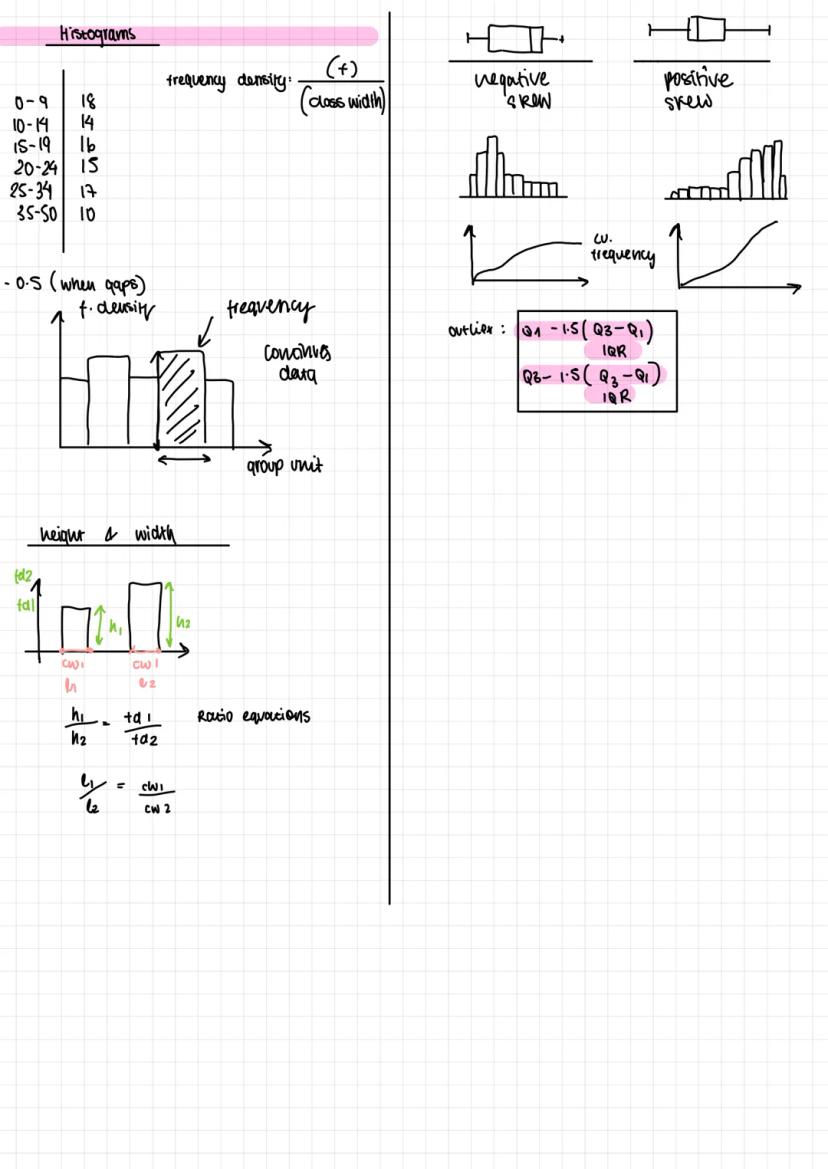 Histograms
frequency density: (f)
(class width)
0-9 18
10-14 14
15-19 16
20-24 15
25-34 17
35-50 10
- 0.5 (when gaps)
f. density
frequency
data
group unit
height & width
fd2
fd1
h1
h2
cw1
cw1
l1
l2
h1 = fd1
h2 fd2
Ratio equations
l1 = cw1
l2 cw2
negative
skew
positive
skew
cu.
frequency
outlier: Q1 - 1.5(Q3-Q1)
IQR
Q3- 1.5(Q3-Q1)
IQR